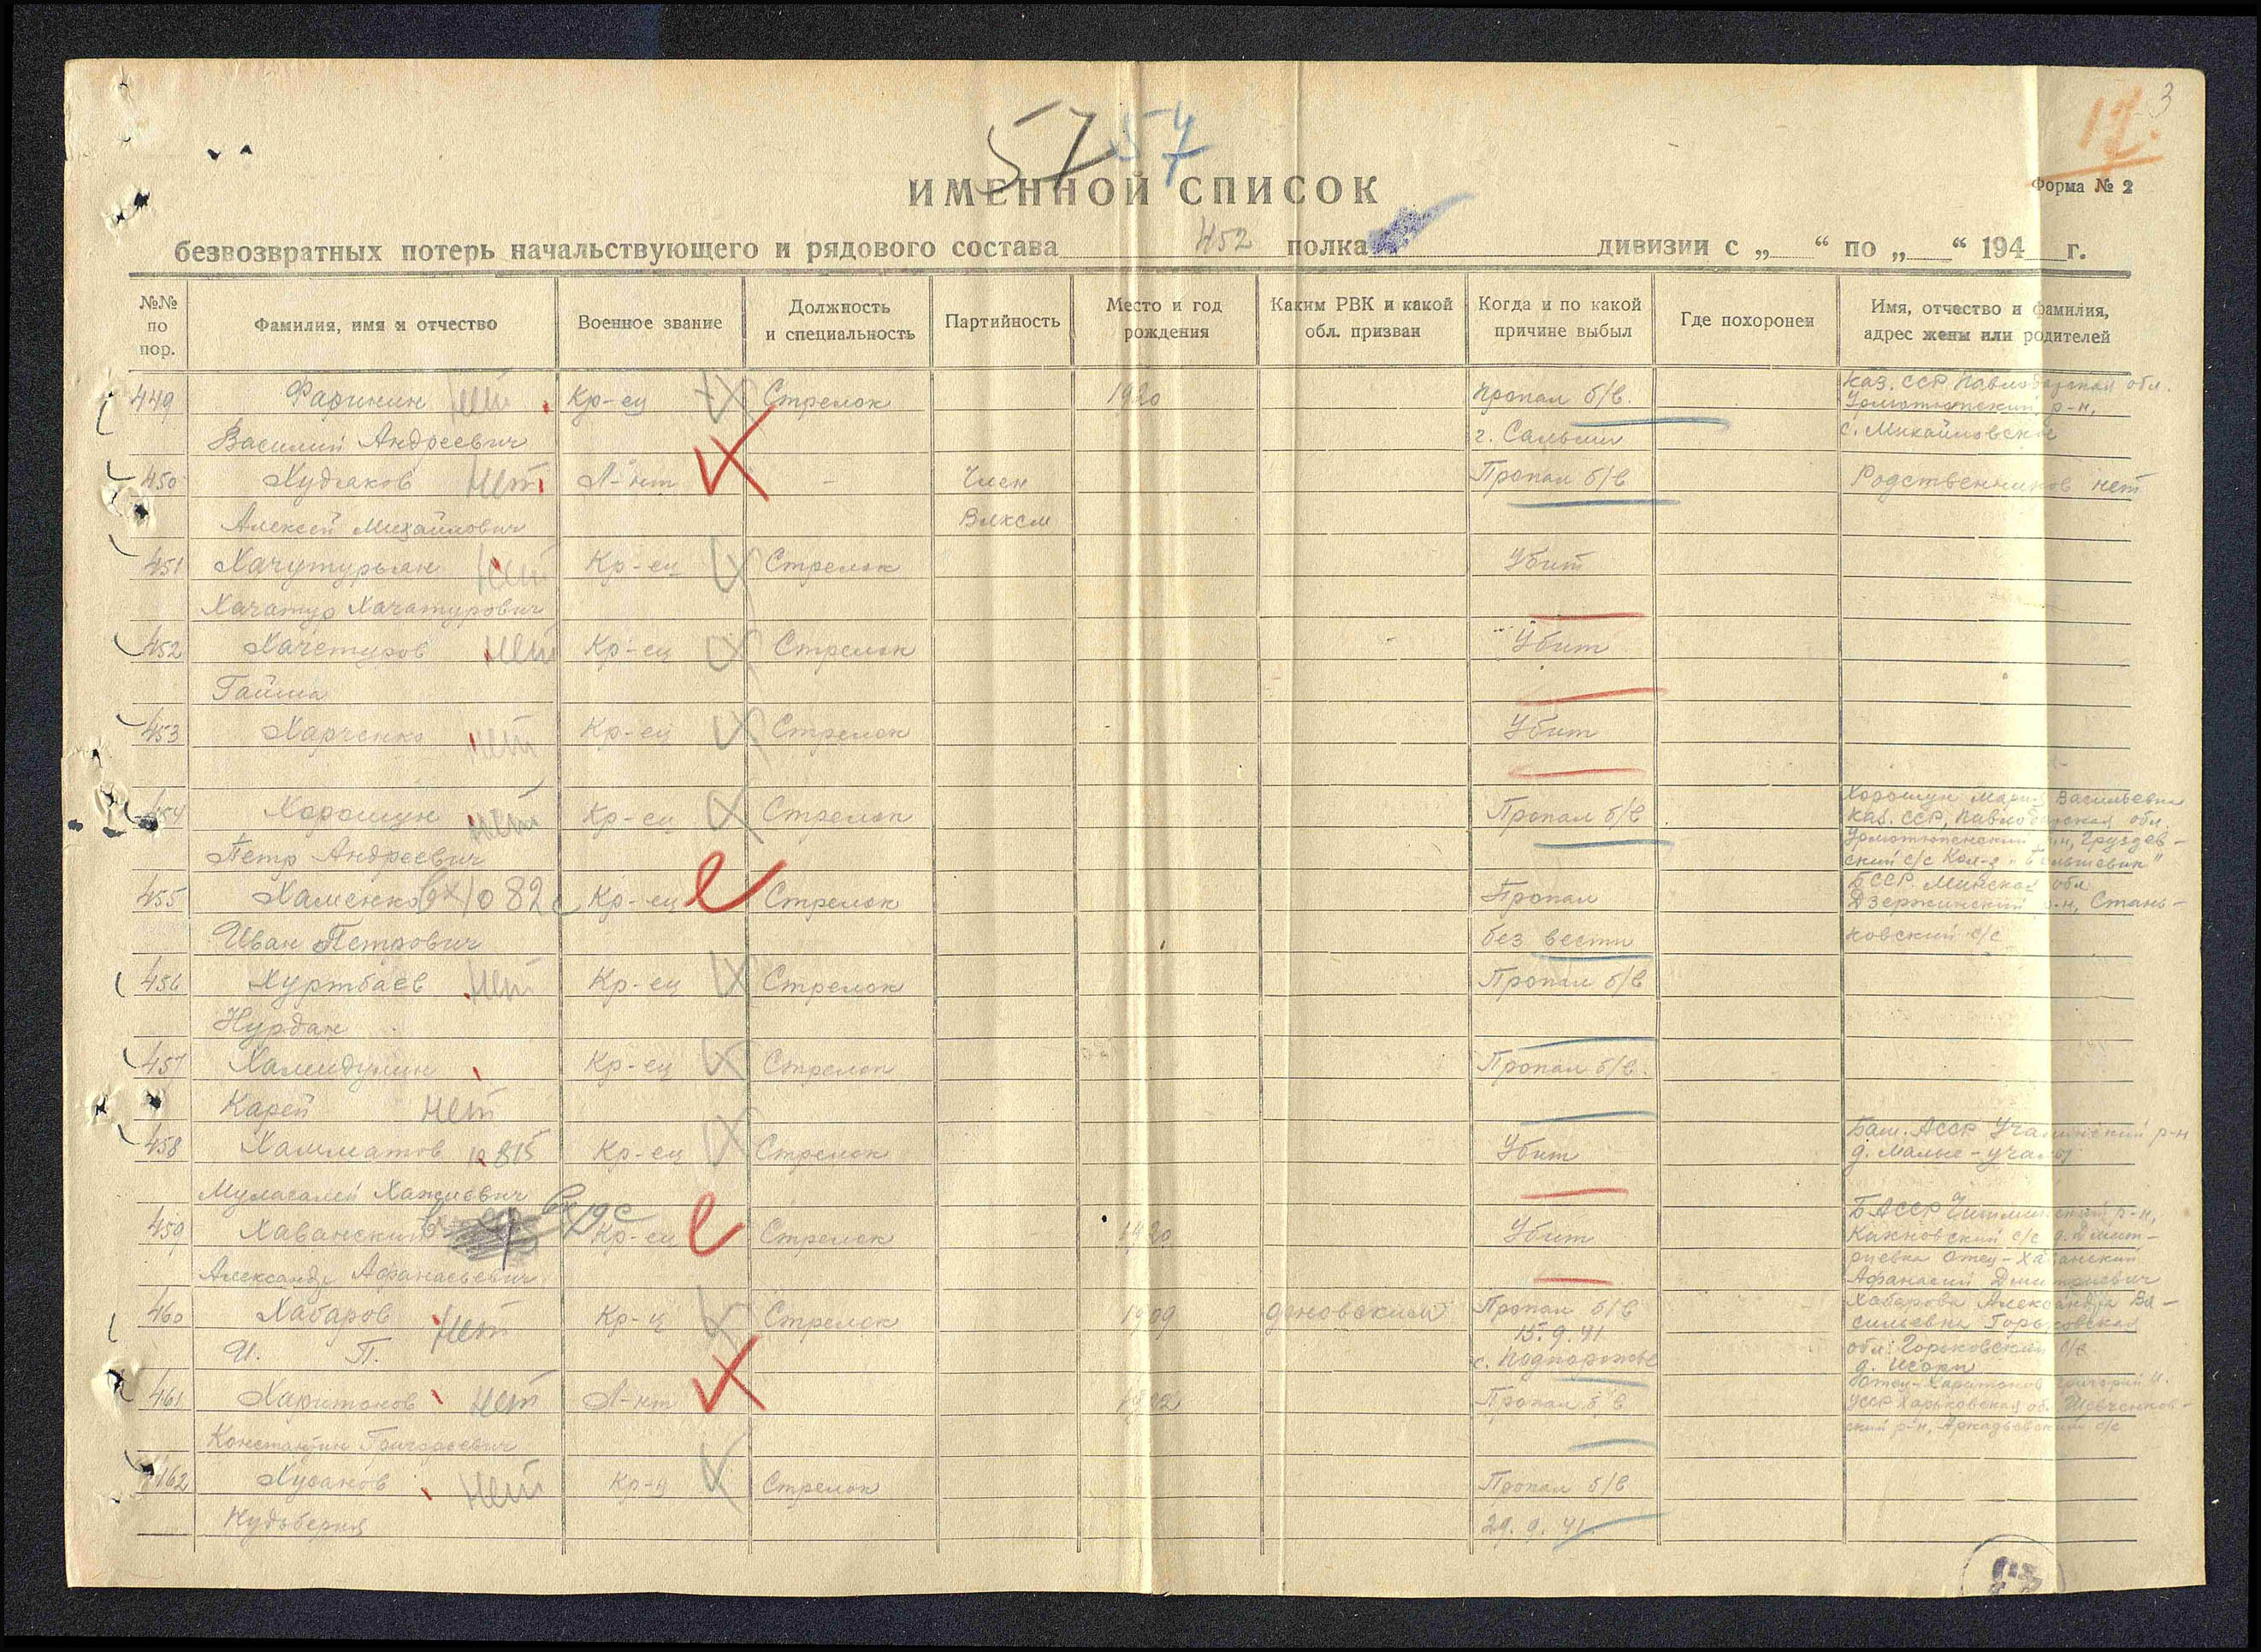 3
12.
57 57
ИМЕННОЙ СПИСОК
Форма № 2
безвозвратных потерь начальствующего и рядового состава 452 полка дивизии с „ “ по „ “ 194 г.
№№ по пор.
Фамилия, имя и отчество
Военное звание
Должность и специальность
Партийность
Место и год рождения
Каким РВК и какой обл. призван
Когда и по какой причине выбыл
Где похоронен
Имя, отчество и фамилия, адрес жены или родителей
449 нет Кр-ец Стрелок 1920 Пропал б/в. Каз. ССР, Павлодарская обл.
р-н,
Василий Андреевич г. с. Михайловское
450 Худяков нет Л-нт - Член Пропал б/в Родственников нет
Алексей Михайлович Влксм
451 Хачутурьян нет Кр-ец Стрелок Убит
Хачатур Хачатурович
452 Хачетуров нет Кр-ец Стрелок Убит
453 Харченко нет Кр-ец Стрелок Убит
454 Хорошун нет Кр-ец Стрелок Пропал б/в Хорошун Мария Васильевна
Каз. ССР, Павлодарская обл.
Груздев-
Петр Андреевич ский с/с Кол-з "Большевик"
455 Хаменко вх 1082с Кр-ец Стрелок Пропал БССР. Минская обл
Дзержинский р-н, Стань-
Иван Петрович без вести ковский с/с
456 Хуртбаев нет Кр-ец Стрелок Пропал б/в
Нурдан
457 Хамидулин Кр-ец Стрелок Пропал б/в.
Карей нет
458 Хамматов 10815 Кр-ец Стрелок Убит Баш. АССР Учалинский р-н
д. Малые-Учалы
Мулагалей Хажиевич
459 Хаванский Кр-ец Стрелок 1920 Убит БАССР Чишминский р-н,
с/с д. Дмит-
риевка отец-Хаванский
Александр Афанасьевич Афанасий Дмитриевич
460 Хабаров нет Кр-ц Стрелок 1909 Пропал б/в Хабарова Александра Ва-
15.9.41 сильевна Горьковская
И. П. с. Подпорожье обл. Горьковский с/с
д.
461 Харитонов нет Л-нт Пропал б/в Отец-Харитонов Григорий И.
УССР Харьковская об. Шевченков-
Константин Григорьевич ский р-н, Аркадьевский с/с
462 нет Кр-ц Стрелок Пропал б/в
29.9.41